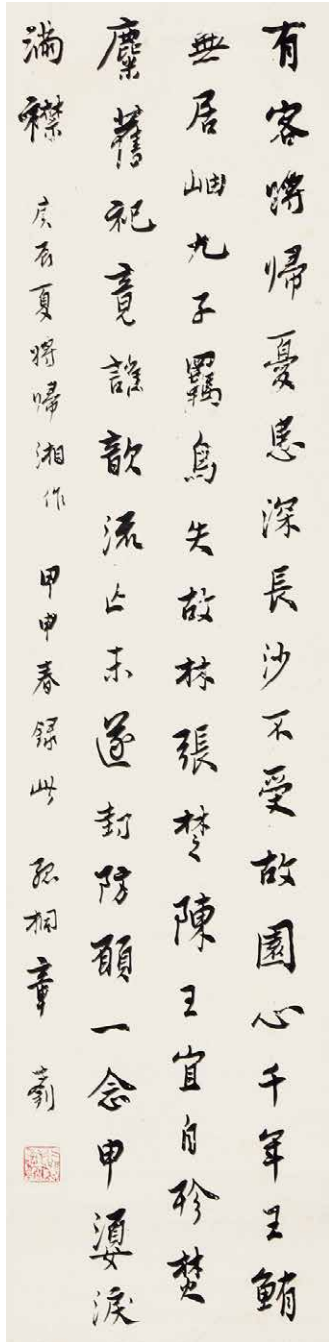 有客將歸憂患深長沙不受故園心千年王鮪
無居岫九子羈鳥失故林張楚陳王宜自珍焚
麋舊祀竟誰歆流亡未遂封防願一念申湲淚
滿襟 庚辰夏將歸湘作 甲申春錄此 孤桐章